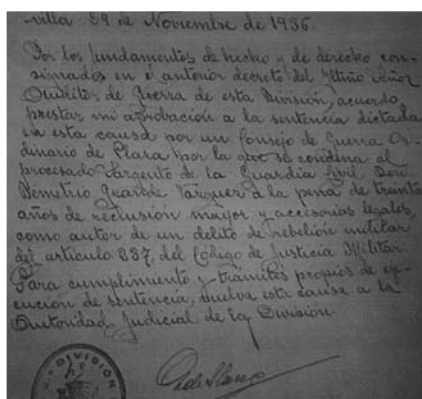 villa 29 de Noviembre de 1936.
Por los fundamentos de hecho y de derecho con-
signados en el anterior decreto del Iltmo Señor
Auditor de Guerra de esta División, acuerdo
prestar mi aprobación a la sentencia dictada
en esta causa por un Consejo de Guerra Or-
dinario de Plaza por la que se condena al
procesado Sargento de la Guardia Civil Don
Demetrio Vázquez a la pena de treinta
años de reclusión mayor y accesorias legales,
como autor de un delito de rebelión militar
del artículo 237, del Código de Justicia Militar
Para cumplimiento y trámites propios de eje-
cución de sentencia, vuelva esta causa a la
Autoridad Judicial de la División
DIVISIÓN